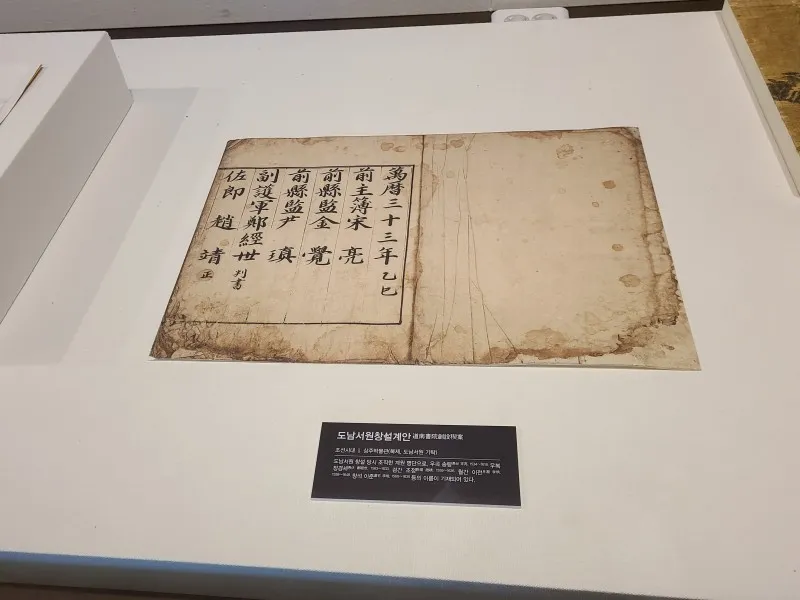 萬曆三十三年乙巳
前主簿宋 亮
前縣監金 覺
前縣監尹 瑱
副護軍鄭經世 判書
佐郎 趙 靖 正
도남서원창설계안 道南書院創設稧案
조선시대 | 상주박물관(복제, 도남서원 기탁)
도남서원 창설 당시 조직한 계원 명단으로, 우곡 송량 우복
정경세 검간 조정 월간 이전
창석 이준 등의 이름이 기재되어 있다.